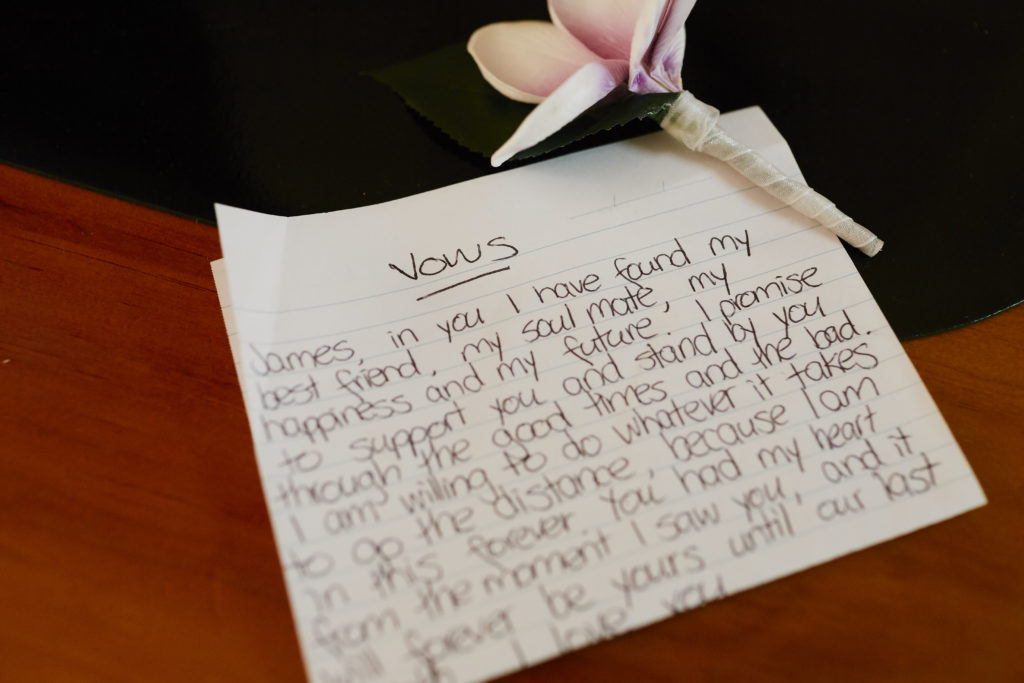 Vows
James, in you I have found my
best friend, my soul mate, my
happiness and my future. I promise
to support you and stand by you
through the good times and the bad.
I am willing to do whatever it takes
to go the distance, because I am
in this forever. You had my heart
from the moment I saw you, and it
will forever be yours until our last
I love you